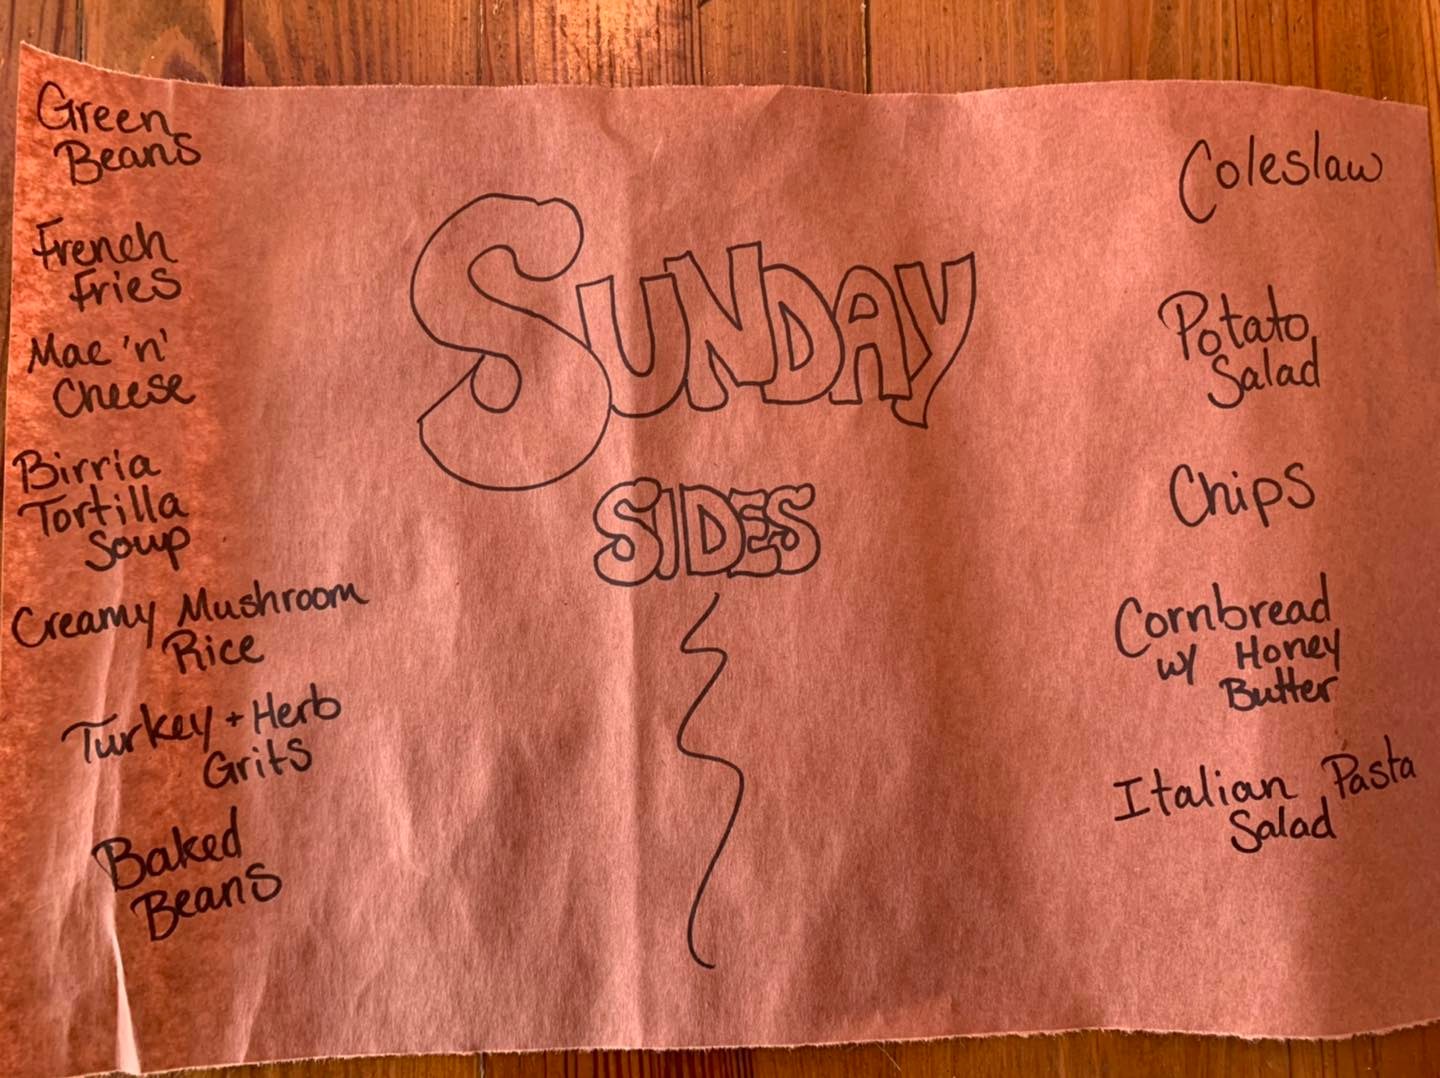 Green
Beans
French
Fries
Mac 'n'
Cheese
Birria
Tortilla
Soup
Creamy Mushroom
Rice
Turkey + Herb
Grits
Baked
Beans
SUNDAY
SIDES
Coleslaw
Potato
Salad
Chips
Cornbread
w/ Honey
Butter
Italian Pasta
Salad